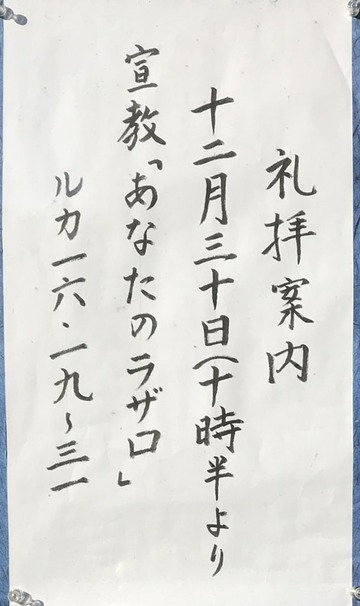 礼拝案内
十二月三十日(十時半より
宣教「あなたのラザロ」
ルカ一六・一九～三一